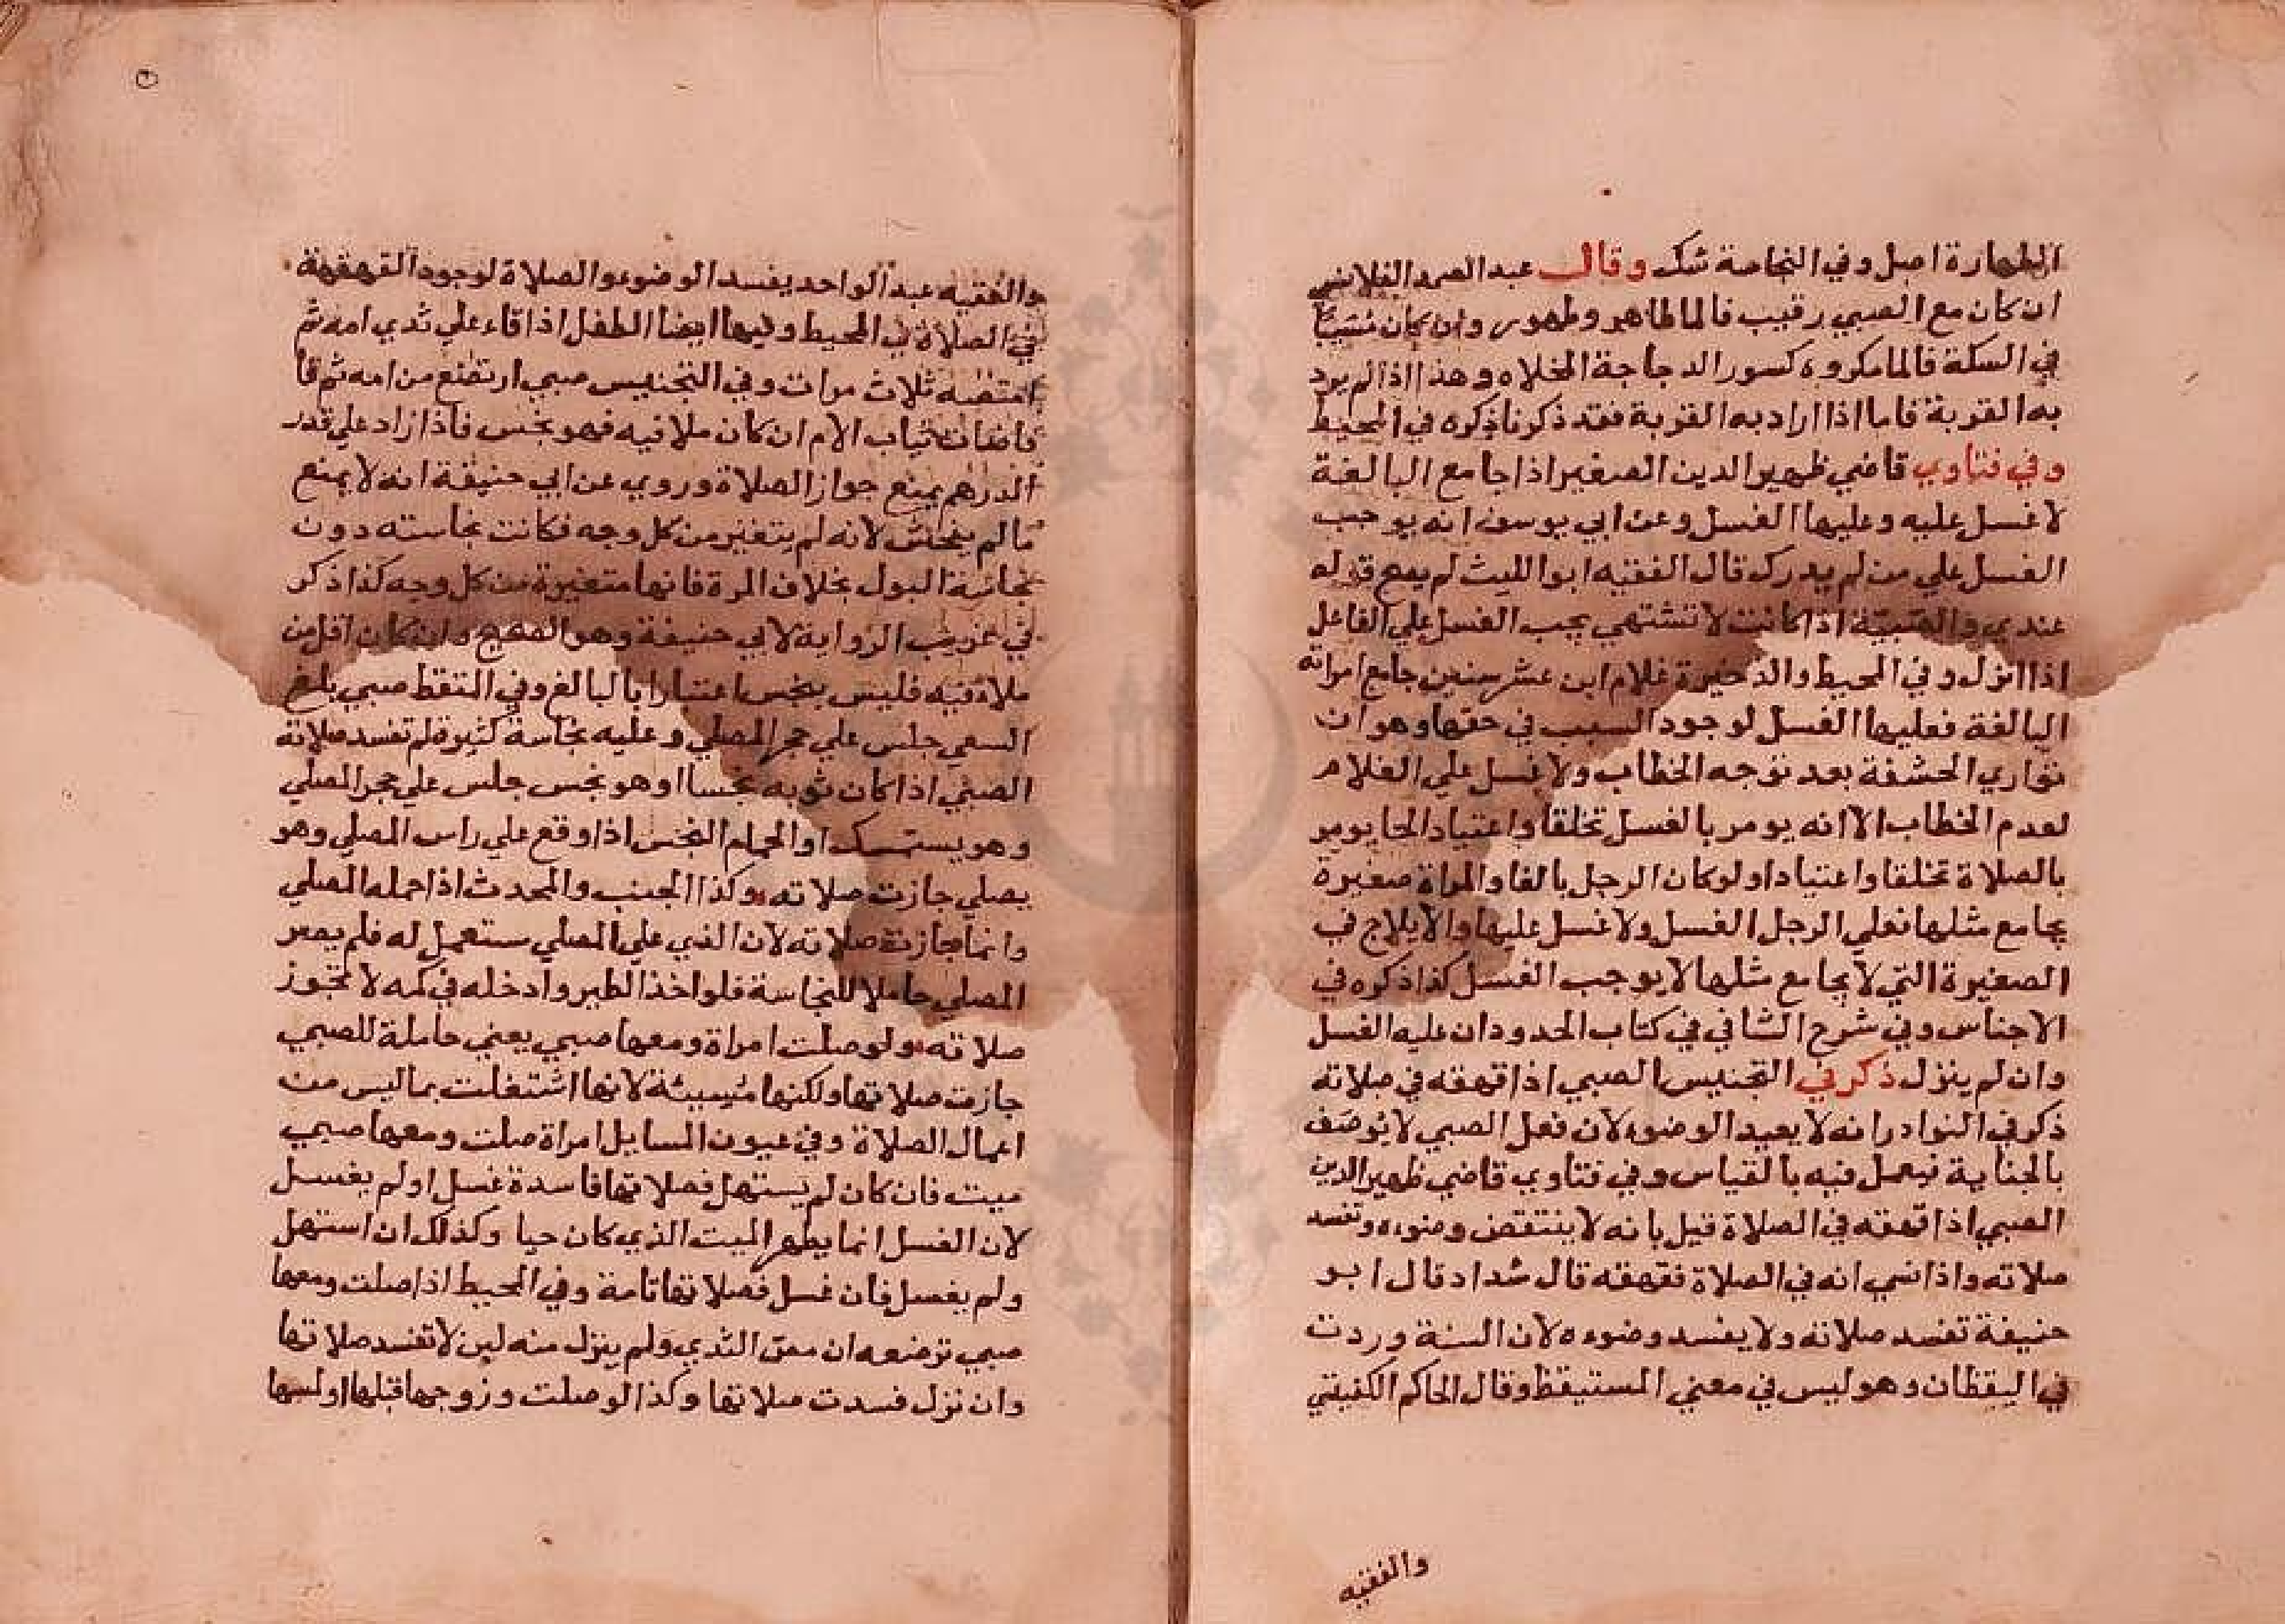 الطهارة اصل وفي النجاسة شك وقال عبد الصمد القلانسي
ان كان مع الصبي رقيب فالما طاهر وطهور وان كان مسيبا
في السكة فالما مكروه كسور الدجاجة المخلاه وهذا اذا لم يرد
به القربة فاما اذا اراد به القربة فقد ذكرنا ذكره في المحيط
وفي فتاوي قاضي ظهير الدين الصغير اذا جامع البالغة
لا غسل عليه وعليها الغسل وعن ابي يوسف انه يوجب
الغسل علي من لم يدرك قال الفقيه ابو الليث لم يصح قوله
عندي والصبية اذا كانت لا تشتهي يجب الغسل علي الفاعل
اذا انزل وفي المحيط والذخيرة غلام ابن عشر سنين جامع امراته
البالغة فعليها الغسل لوجود السبب في حقها وهو ان
تواري الحشفة بعد توجه الخطاب ولا غسل علي الغلام
لعدم الخطاب الا انه يومر بالغسل تخلقا واعتيادا كما يومر
بالصلاة تخلقا واعتيادا ولو كان الرجل بالغا والمراة صغيرة
يجامع مثلها فعلي الرجل الغسل ولا غسل عليها والايلاج في
الصغيرة التي لا يجامع مثلها لا يوجب الغسل كذا ذكره في
الاجناس وفي شرح الشافي في كتاب الحدود ان عليه الغسل
وان لم ينزل ذكر في التجنيس الصبي اذا قهقه في صلاته
ذكر في النوادر انه لا يعيد الوضوء لان فعل الصبي لا يوصف
بالجناية فيعمل فيه بالقياس وفي فتاوي قاضي ظهير الدين
الصبي اذا قهقه في الصلاة قيل بانه لا ينتقض وضوءه وتفسد
صلاته واذا نسي انه في الصلاة فقهقه قال شداد قال ابو
حنيفة تفسد صلاته ولا يفسد وضوءه لان السنة وردت
في اليقظان وهو ليس في معني المستيقظ وقال الحاكم الكفيتي
والفقيه
والفقيه عبد الواحد يفسد الوضوء والصلاة لوجود القهقهة
في الصلاة في المحيط وفيها ايضا الطفل اذا قاء علي ثدي امه ثم
امتصه ثلاث مرات وفي التجنيس صبي ارتضع من امه ثم قا
فاصاب ثياب الام ان كان ملا فيه فهو نجس فاذا زاد علي قدر
الدرهم يمنع جواز الصلاة وروي عن ابي حنيفة انه لا يمنع
ما لم يفحش لانه لم يتغير من كل وجه فكانت نجاسته دون
نجاسة البول بخلاف المرة فانها متغيرة من كل وجه كذا ذكر
في غريب الرواية لابي حنيفة وهو الصحيح وان كان اقل من
ملاء فيه فليس بنجس اعتبارا بالبالغ وفي الملتقط صبي بلغ
السعي جلس علي حجر المصلي وعليه نجاسة كثيره لم تفسد صلاته
الصبي اذا كان ثوبه نجسا او هو نجس جلس علي حجر المصلي
وهو يستمسك او الحمام النجس اذا وقع علي راس المصلي وهو
يصلي جازت صلاته وكذا الجنب والمحدث اذا حمله المصلي
وانما جازت صلاته لان الذي علي المصلي مستعمل له فلم يصر
المصلي حاملا للنجاسة فلو اخذ الطير وادخله في كمه لا تجوز
صلاته ولو صلت امراة ومعها صبي يعني حاملة للصبي
جازت صلاتها ولكنها مسيئة لانها اشتغلت بما ليس من
اعمال الصلاة وفي عيون المسايل امراة صلت ومعها صبي
ميت فان كان لم يستهل فصلاتها فاسدة غسل او لم يغسل
لان الغسل انما يطهر الميت الذي كان حيا وكذلك ان استهل
ولم يغسل فان غسل فصلاتها تامة وفي المحيط اذا صلت ومعها
صبي ترضعه ان مص الثدي ولم ينزل منه لبن لا تفسد صلاتها
وان نزل فسدت صلاتها وكذا لو صلت وزوجها قبلها او لمسها